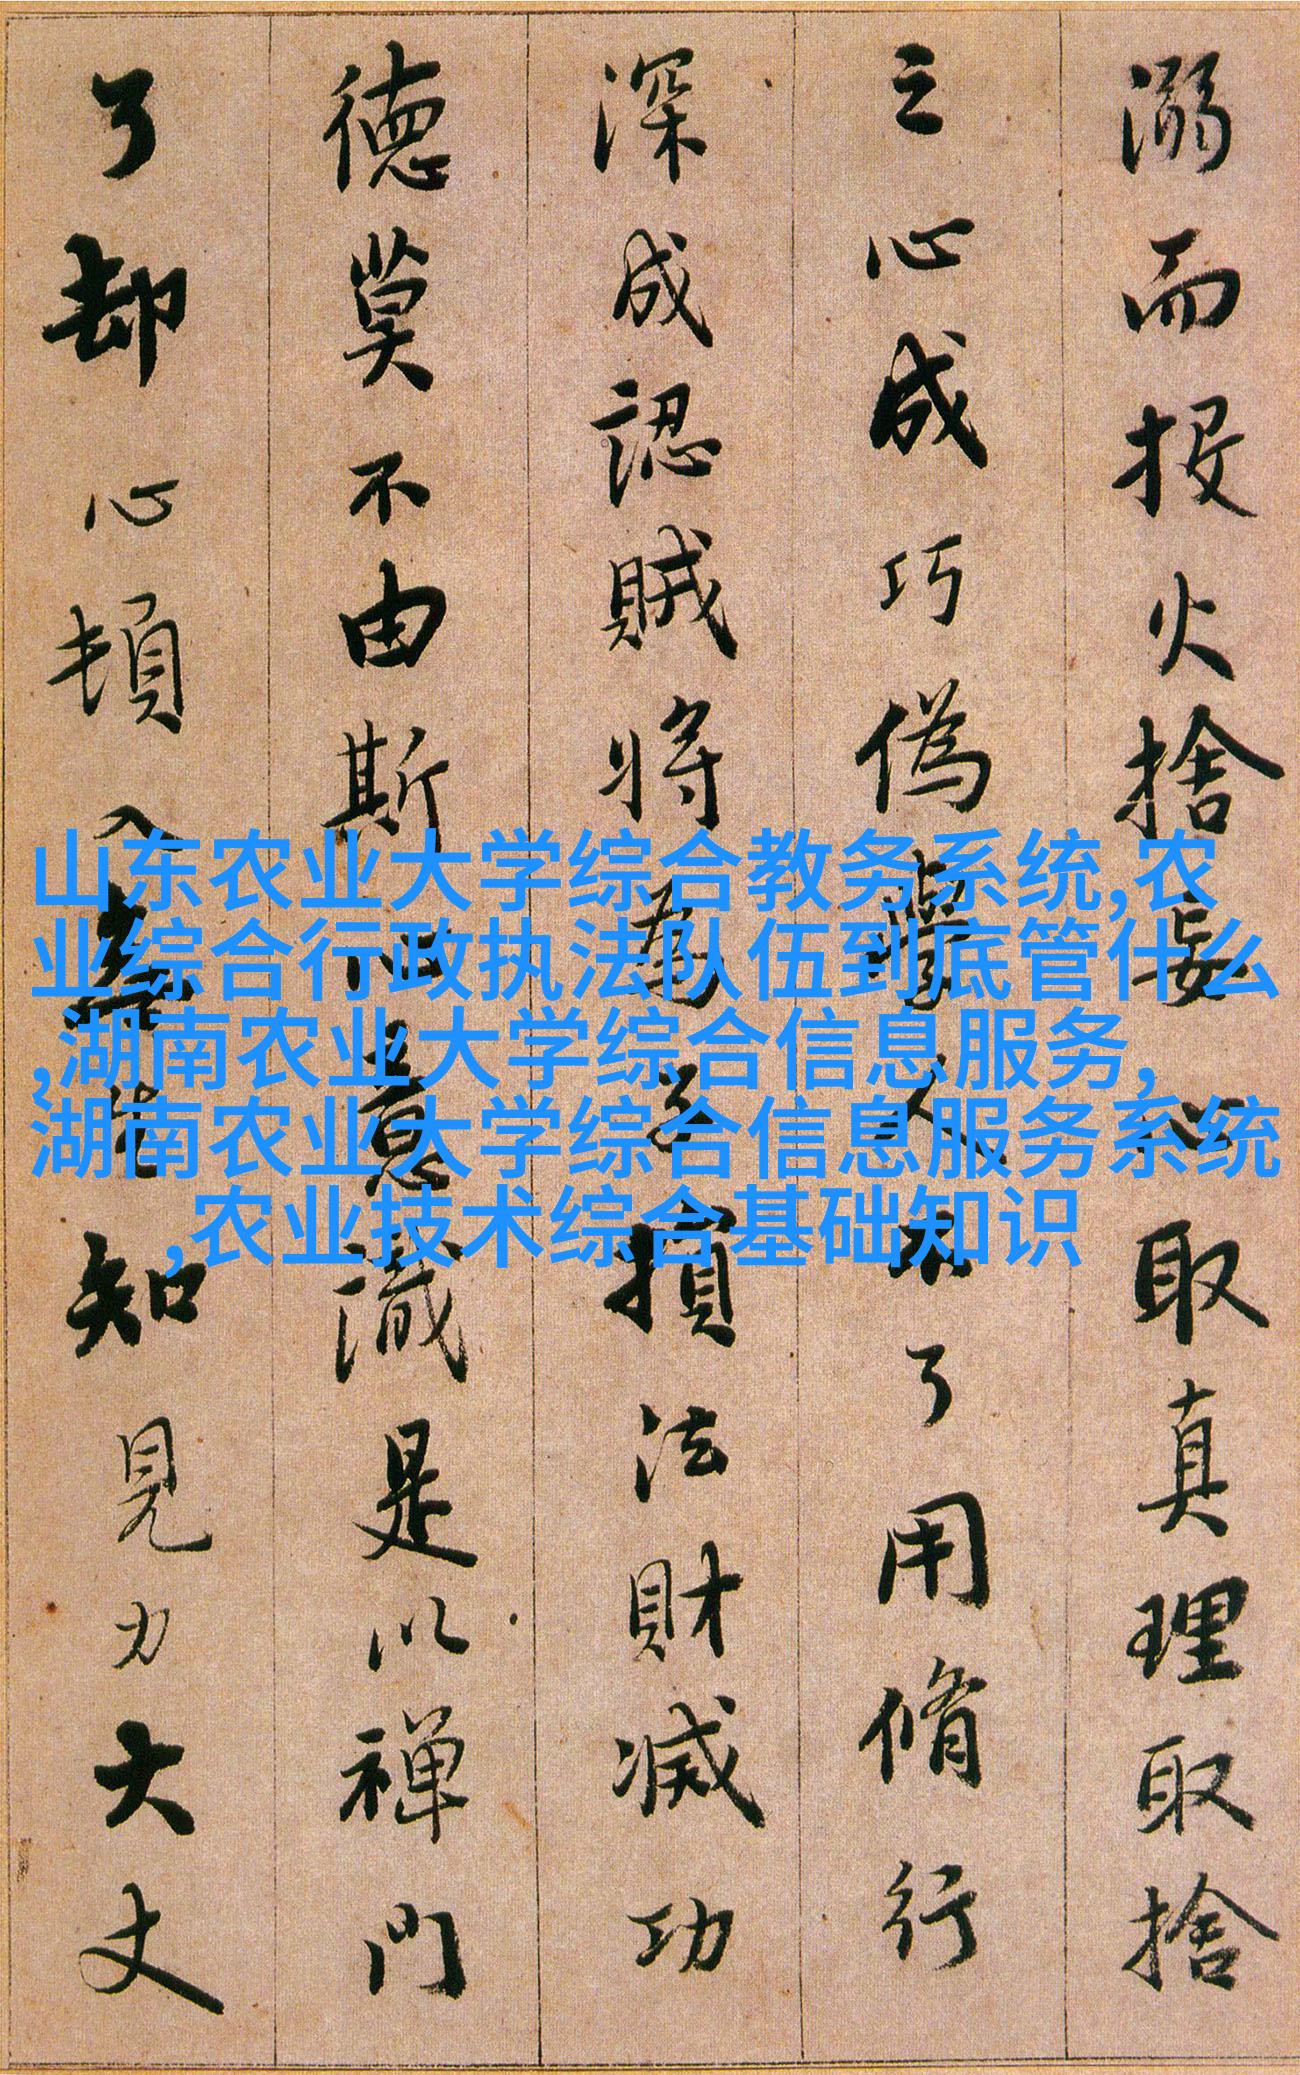 溺而投火捨妄心取真理取捨
之心成巧偽學人不了用脩行
深成認賊將為子損法財滅功
德莫不由斯心意識是以禪門
了却心頓入無生知見力大丈
山东农业大学综合教务系统,农
业综合行政执法队伍到底管什么
,湖南农业大学综合信息服务,
湖南农业大学综合信息服务系统
,农业技术综合基础知识